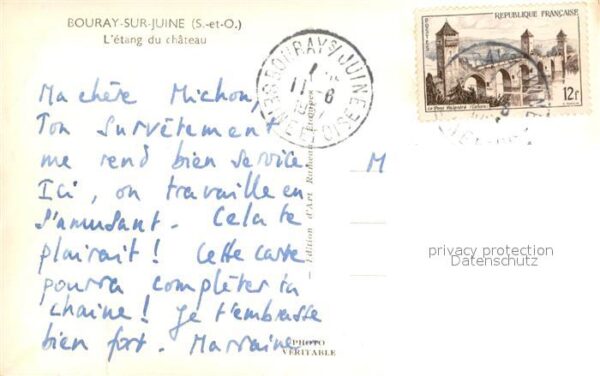 BOURAY-SUR-JUINE (S.-et-O.)
L'étang du château
BOURAY S/ JUINE
11-6
SEINE ET OISE
REPUBLIQUE FRANÇAISE
POSTES
Le Pont Valentré (Cahors)
12f
Ma chère Michon,
Ton survêtement
me rend bien service.
Ici, on travaille en
s'amusant. Cela te
plairait! Cette carte
pourra compléter ta
chaîne! Je t'embrasse
bien fort. Marraine
M
Edition d'Art
PHOTO
VERITABLE
privacy protection
Datenschutz